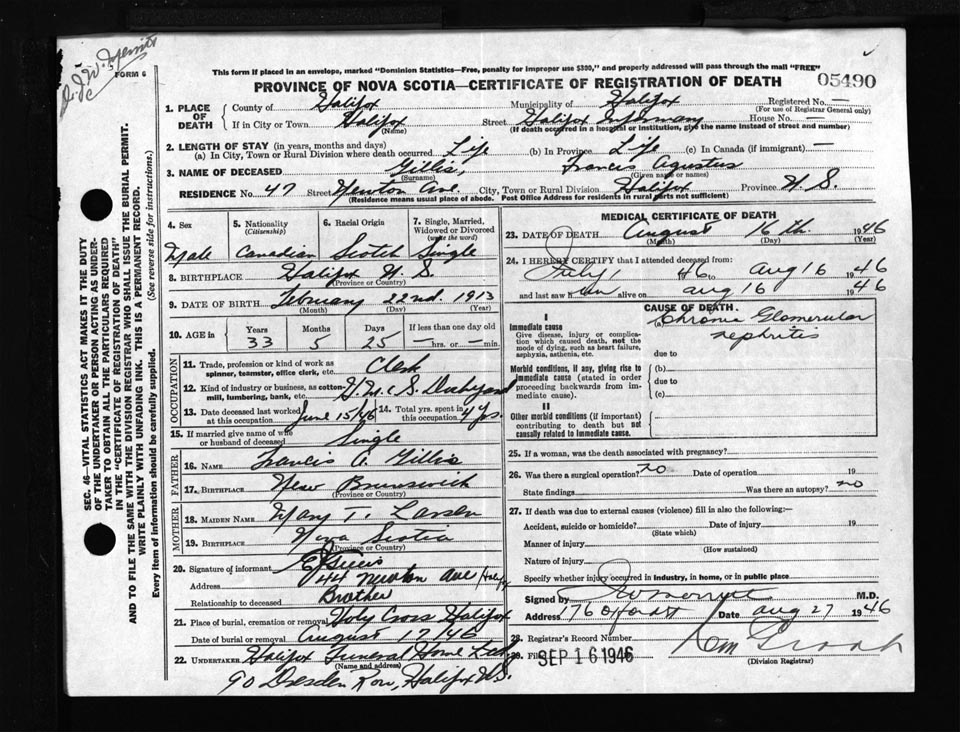 J. W. Merritt
FORM 6
This form if placed in an envelope, marked "Dominion Statistics—Free, penalty for improper use $300," and properly addressed will pass through the mail "FREE"
PROVINCE OF NOVA SCOTIA—CERTIFICATE OF REGISTRATION OF DEATH 05490
SEC. 46—VITAL STATISTICS ACT MAKES IT THE DUTY
OF THE UNDERTAKER OR PERSON ACTING AS UNDER-
TAKER TO OBTAIN ALL THE PARTICULARS REQUIRED
IN THE "CERTIFICATE OF REGISTRATION OF DEATH"
AND TO FILE THE SAME WITH THE DIVISION REGISTRAR WHO SHALL ISSUE THE BURIAL PERMIT.
WRITE PLAINLY WITH UNFADING INK. THIS IS A PERMANENT RECORD.
Every item of information should be carefully supplied. (See reverse side for instructions.)
1. PLACE OF DEATH
County of Halifax Municipality of Halifax Registered No. —
(For use of Registrar General only)
If in City or Town Halifax Street Halifax Infirmary House No. —
(Name) (If death occurred in a hospital or institution, give the name instead of street and number)
2. LENGTH OF STAY (in years, months and days)
(a) In City, Town or Rural Division where death occurred Life (b) In Province Life (c) In Canada (if immigrant) —
3. NAME OF DECEASED Gillis, Francis Agustus
(Surname) (Given name or names)
RESIDENCE No. 47 Street Newton Ave. City, Town or Rural Division Halifax Province N. S.
(Residence means usual place of abode. Post Office Address for residents in rural parts not sufficient)
4. Sex 5. Nationality (Citizenship) 6. Racial Origin 7. Single, Married, Widowed or Divorced (write the word)
Male Canadian Scotch Single
8. BIRTHPLACE Halifax N. S.
(Province or Country)
9. DATE OF BIRTH February 22nd. 1913
(Month) (Day) (Year)
10. AGE in Years Months Days If less than one day old
33 5 25 — hrs. or — min.
OCCUPATION
11. Trade, profession or kind of work as spinner, teamster, office clerk, etc. Clerk
12. Kind of industry or business, as cotton-mill, lumbering, bank, etc. H.M.C.S. Dockyard
13. Date deceased last worked at this occupation June 15/46 14. Total yrs. spent in this occupation 4 yrs.
15. If married give name of wife or husband of deceased Single
FATHER
16. NAME Francis A. Gillis
17. BIRTHPLACE New Brunswick
(Province or Country)
MOTHER
18. MAIDEN NAME Mary T. Larsen
19. BIRTHPLACE Nova Scotia
(Province or Country)
20. Signature of informant E Gillis
Address 44 Newton Ave
Relationship to deceased Brother
21. Place of burial, cremation or removal Holy Cross Halifax
Date of burial or removal August 17/46
22. UNDERTAKER Halifax Funeral Home
(Name and address)
90 Dresden Row, Halifax N.S.
MEDICAL CERTIFICATE OF DEATH
23. DATE OF DEATH August 16th. 1946
(Month) (Day) (Year)
24. I HEREBY CERTIFY that I attended deceased from:
July 1 46 to Aug 16 1946
and last saw him alive on Aug 16 1946
CAUSE OF DEATH.
I
Immediate cause
Give disease, injury or complication which caused death, not the mode of dying, such as heart failure, asphyxia, asthenia, etc.
Chronic Glomerular
nephritis
due to
Morbid conditions, if any, giving rise to immediate cause (stated in order proceeding backwards from immediate cause).
(b)
due to
(c)
II
Other morbid conditions (if important) contributing to death but not causally related to immediate cause.
25. If a woman, was the death associated with pregnancy?
26. Was there a surgical operation? no Date of operation 19
State findings Was there an autopsy? no
27. If death was due to external causes (violence) fill in also the following:—
Accident, suicide or homicide? Date of injury 19
(State which)
Manner of injury
(How sustained)
Nature of injury
Specify whether injury occurred in industry, in home, or in public place
Signed by J W Merritt M.D.
Address 176 Oxford St Date Aug 27 1946
28. Registrar's Record Number
29. Filed SEP 16 1946
(Division Registrar)